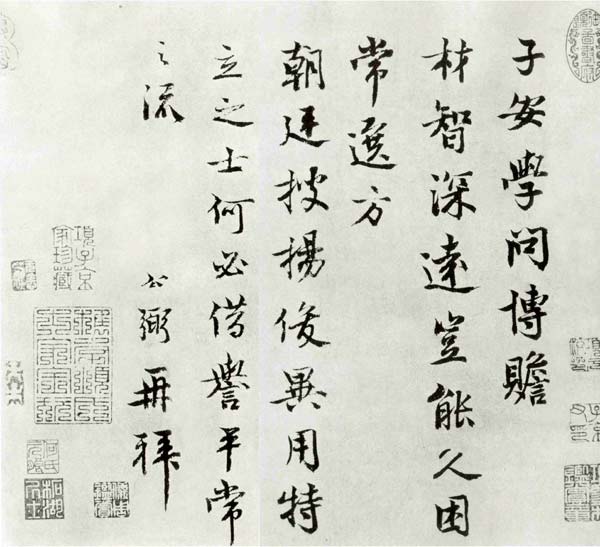 子安學問博贍
材智深遠豈能久困
常選方
朝廷搜揚俊異用特
立之士何必借譽平常
之流
公弼再拜
項子京家珍藏